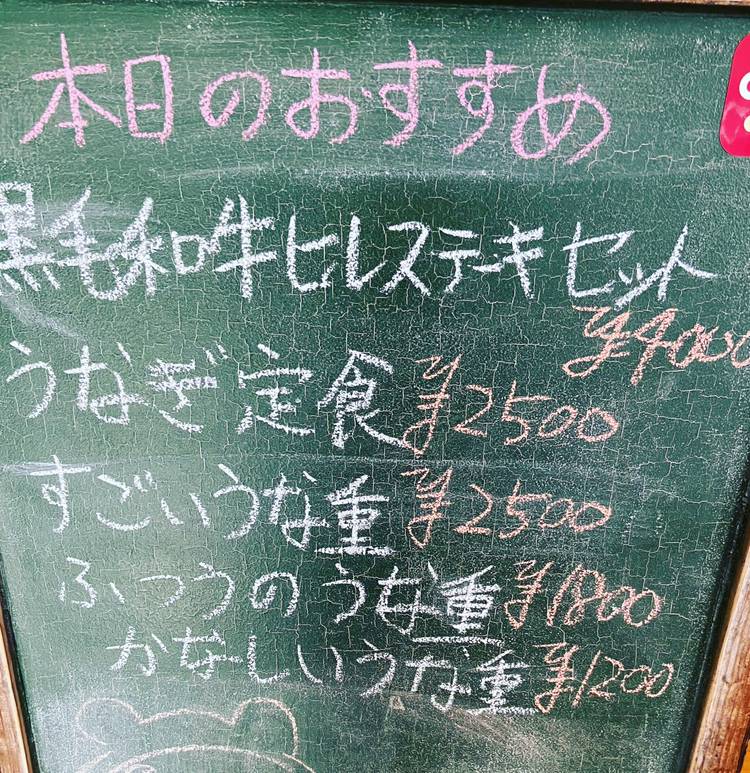 本日のおすすめ
黒毛和牛ヒレステーキセット
¥4000
うなぎ定食 ¥2500
すごいうな重 ¥2500
ふつうのうな重 ¥1800
かなしいうな重 ¥1200